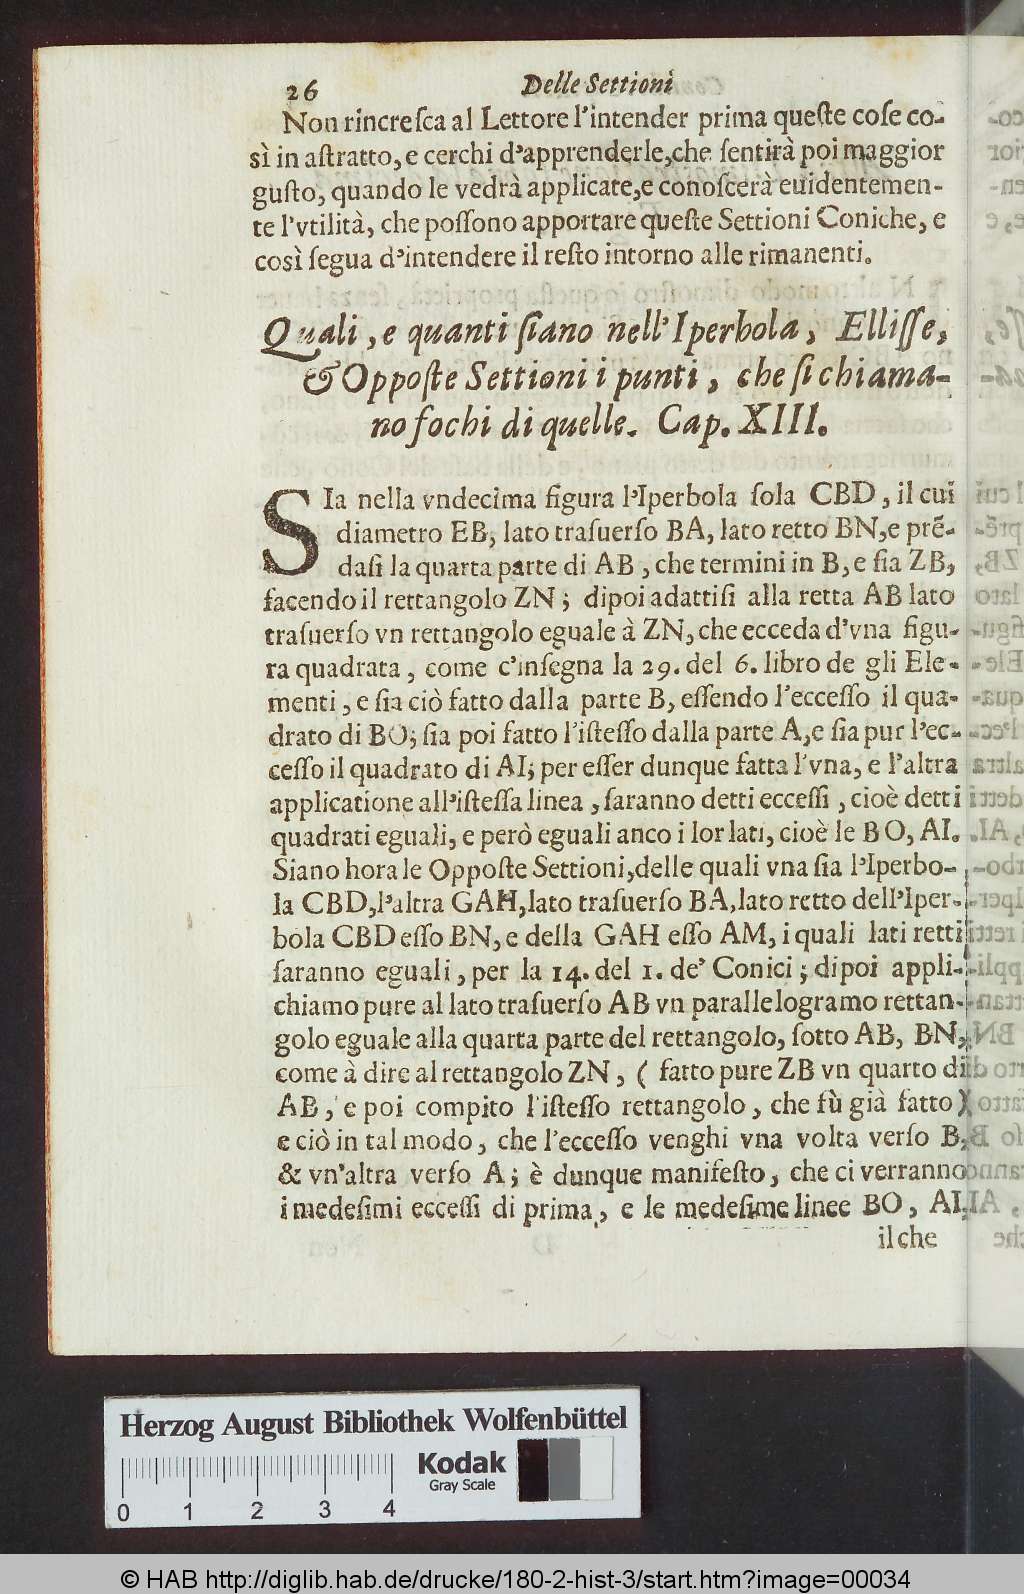 26 Delle Settioni
Non rincreſca al Lettore l'intender prima queſte coſe co-
sì in aſtratto, e cerchi d'apprenderle, che ſentirà poi maggior
guſto, quando le vedrà applicate, e conoſcerà euidentemen-
te l'vtilità, che poſſono apportare queſte Settioni Coniche, e
così ſegua d'intendere il reſto intorno alle rimanenti.
Quali, e quanti ſiano nell'Iperbola, Elliſſe,
& Oppoſte Settioni i punti, che ſi chiama-
no fochi di quelle. Cap. XIII.
SIa nella vndecima figura l'Iperbola ſola CBD, il cui
diametro EB, lato traſuerſo BA, lato retto BN, e prẽ-
daſi la quarta parte di AB, che termini in B, e ſia ZB,
facendo il rettangolo ZN; dipoi adattiſi alla retta AB lato
traſuerſo vn rettangolo eguale à ZN, che ecceda d'vna figu-
ra quadrata, come c'inſegna la 29. del 6. libro de gli Ele-
menti, e ſia ciò fatto dalla parte B, eſſendo l'ecceſſo il qua-
drato di BO; ſia poi fatto l'iſteſſo dalla parte A, e ſia pur l'ec-
ceſſo il quadrato di AI; per eſſer dunque fatta l'vna, e l'altra
applicatione all'iſteſſa linea, ſaranno detti ecceſſi, cioè detti
quadrati eguali, e però eguali anco i lor lati, cioè le BO, AI.
Siano hora le Oppoſte Settioni, delle quali vna ſia l'Iperbo-
la CBD, l'altra GAH, lato traſuerſo BA, lato retto dell'Iper-
bola CBD eſſo BN, e della GAH eſſo AM, i quali lati retti
ſaranno eguali, per la 14. del 1. de' Conici; dipoi appli-
chiamo pure al lato traſuerſo AB vn parallelogramo rettan-
golo eguale alla quarta parte del rettangolo, ſotto AB, BN,
come à dire al rettangolo ZN, (fatto pure ZB vn quarto di
AB, e poi compito l'iſteſſo rettangolo, che fù già fatto)
e ciò in tal modo, che l'ecceſſo venghi vna volta verſo B,
& vn'altra verſo A; è dunque manifeſto, che ci verranno
i medeſimi ecceſſi di prima, e le medeſime linee BO, AI,
il che
Herzog August Bibliothek Wolfenbüttel
Kodak
Gray Scale
0 1 2 3 4
© HAB http://diglib.hab.de/drucke/180-2-hist-3/start.htm?image=00034